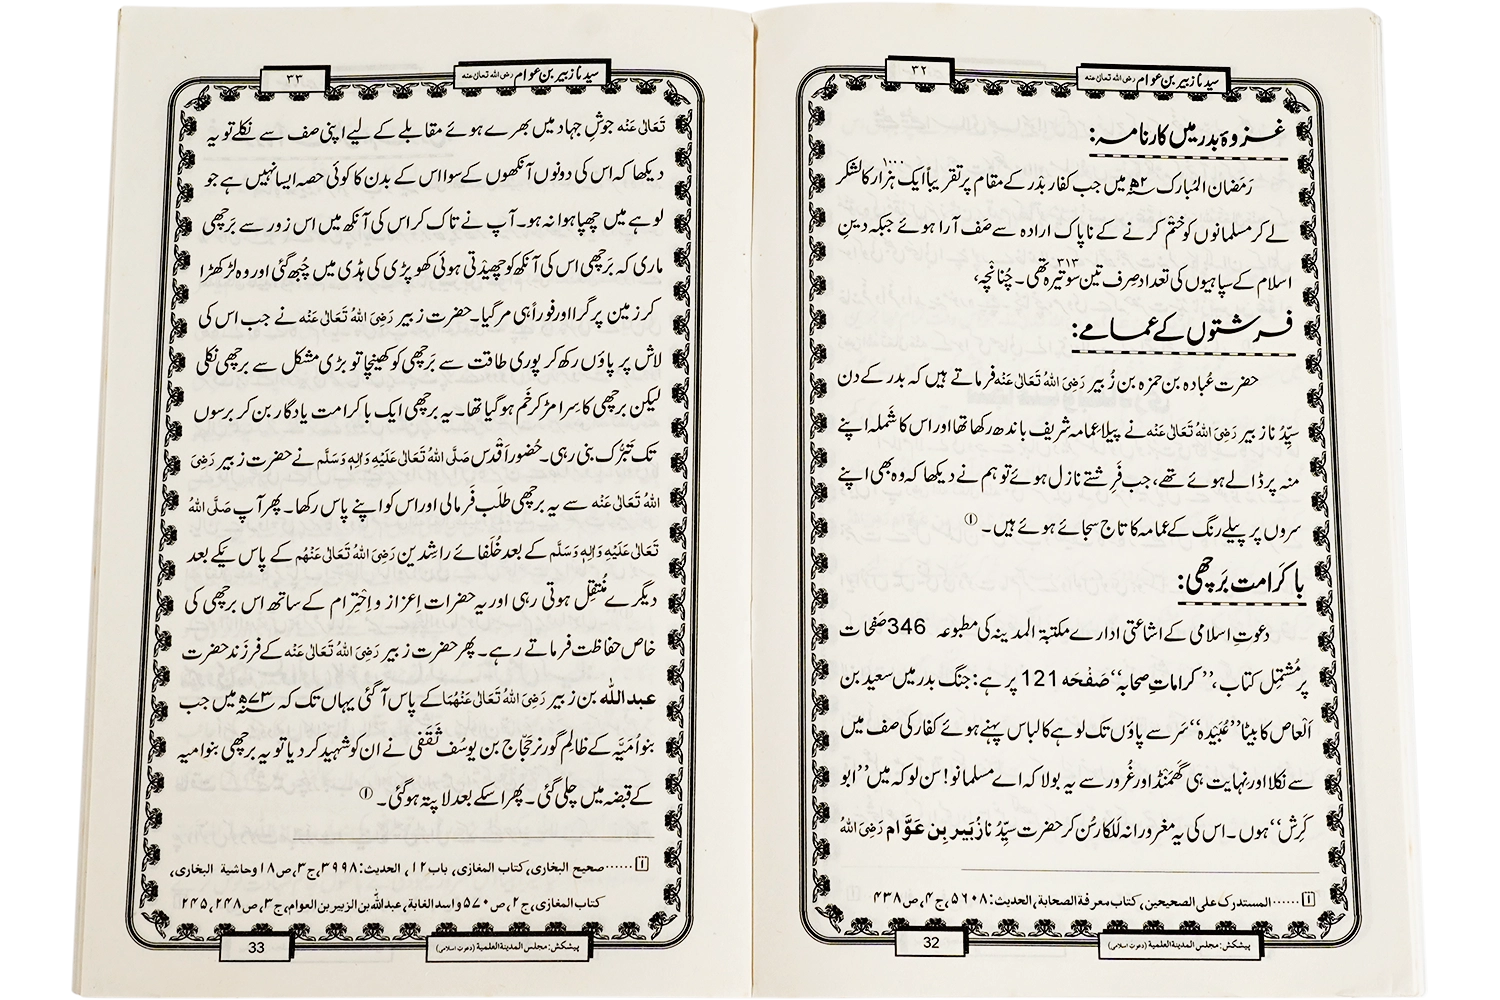 سیدنا زبیر بن عوام رضی اللہ تعالٰی عنہ
۳۲
غزوۂ بدر میں کارنامہ:
رَمَضان المُبارک ۲ھ میں جب کفار بدْر کے مقام پر تقریباً ایک ہزار ۱۰۰۰ کا لشکر
لے کر مسلمانوں کو ختْم کرنے کے ناپاک ارادہ سے صَف آرا ہوئے جبکہ دینِ
اسلام کے سپاہیوں کی تعداد صِرف تین سو تیرہ ۳۱۳ تھی۔ چُنانْچہ،
فرشتوں کے عمامے:
حضرت عُبادہ بن حمزہ بن زُبیر رَضِیَ اللہُ تَعَالٰی عَنْہ فرماتے ہیں کہ بدر کے دن
سیِّدُنا زبیر رَضِیَ اللہُ تَعَالٰی عَنْہ نے پیلا عمامہ شریف باندھ رکھا تھا اور اس کا شَملہ اپنے
منہ پر ڈالے ہوئے تھے، جب فَرِشتے نازل ہوئے تو ہم نے دیکھا کہ وہ بھی اپنے
سروں پر پیلے رنگ کے عمامہ کا تاج سجائے ہوئے ہیں۔ (۱)
با کَرامت بَرچھی:
دعوتِ اسلامی کے اشاعتی ادارے مکتبۃ المدینہ کی مطبوعہ 346 صَفحات
پر مُشتمِل کتاب، ’’کراماتِ صحابہ‘‘ صَفْحَہ 121 پر ہے: جنگ بدر میں سعید بن
اَلْعاص کا بیٹا ’’عُبَیْدَہ‘‘ سَر سے پاؤں تک لوہے کا لباس پہنے ہوئے کفار کی صف میں
سے نکلا اور نہایت ہی گھَمَنْڈ اور غُرور سے یہ بولا کہ اے مسلمانو! سن لو کہ میں ’’ابو
کَرِش‘‘ ہوں۔ اس کی یہ مغرورانہ للکار سُن کر حضرت سیِّدُنا زُبَیر بِن عَوَّام رَضِیَ اللہُ
۱......المستدرک علی الصحیحین، کتاب معرفۃ الصحابۃ، الحدیث: ۵۶۰۸، ج۴، ص۴۳۸
پیشکش: مجلس المدینۃ العلمیۃ (دعوت اسلامی)
32
سیدنا زبیر بن عوام رضی اللہ تعالٰی عنہ
۳۳
تَعَالٰی عَنْہ جوشِ جہاد میں بھرے ہوئے مقابلے کے لیے اپنی صف سے نکلے تو یہ
دیکھا کہ اس کی دونوں آنکھوں کے سوا اس کے بدن کا کوئی حصہ ایسا نہیں ہے جو
لوہے میں چھپا ہوا نہ ہو۔ آپ نے تاک کر اس کی آنکھ میں اس زور سے بَرچھی
ماری کہ بَرچھی اس کی آنکھ کو چھیدْتی ہوئی کھوپڑی کی ہڈی میں چُبھ گئی اور وہ لڑکھڑا
کر زمین پر گرا اور فوراً ہی مر گیا۔ حضرت زبیر رَضِیَ اللہُ تَعَالٰی عَنْہ نے جب اس کی
لاش پر پاؤں رکھ کر پوری طاقت سے بَرچھی کو کھینچا تو بڑی مشکل سے برچھی نکلی
لیکن برچھی کا سِرا مڑ کر خَم ہو گیا تھا۔ یہ برچھی ایک باکرامت یادگار بن کر برسوں
تک تَبَرُّک بنی رہی۔ حُضورِ اقْدَس صَلَّی اللہُ تَعَالٰی عَلَیْہِ وَاٰلِہٖ وَسَلَّم نے حضرت زبیر رَضِیَ
اللہُ تَعَالٰی عَنْہ سے یہ برچھی طلَب فَرما لی اور اس کو اپنے پاس رکھا۔ پھر آپ صَلَّی اللہُ
تَعَالٰی عَلَیْہِ وَاٰلِہٖ وَسَلَّم کے بعد خُلَفائے راشدین رَضِیَ اللہُ تَعَالٰی عَنْہُم کے پاس یکے بعد
دیگرے مُنتقِل ہوتی رہی اور یہ حضرات اِعزاز و اِحترام کے ساتھ اس برچھی کی
خاص حفاظت فرماتے رہے۔ پھر حضرت زبیر رَضِیَ اللہُ تَعَالٰی عَنْہ کے فرزند حضرت
عبداللہ بن زبیر رَضِیَ اللہُ تَعَالٰی عَنْہُمَا کے پاس آ گئی یہاں تک کہ ۷۳ھ میں جب
بنو اُمَیَّہ کے ظالِم گورنر حَجّاج بن یوسُف ثَقَفی نے ان کو شہید کر دیا تو یہ برچھی بنو امیہ
کے قبضہ میں چلی گئی۔ پھر اسکے بعد لا پتہ ہو گئی۔ (۱)
۱......صحیح البخاری، کتاب المغازی، باب ۱۲، الحدیث: ۳۹۹۸، ج۳، ص۱۸ وحاشیۃ البخاری،
کتاب المغازی، ج۲، ص۵۷۰ و اسد الغابۃ، عبداللہ بن الزبیر بن العوام، ج۳، ص۲۴۸، ۲۴۵
پیشکش: مجلس المدینۃ العلمیۃ (دعوت اسلامی)
33